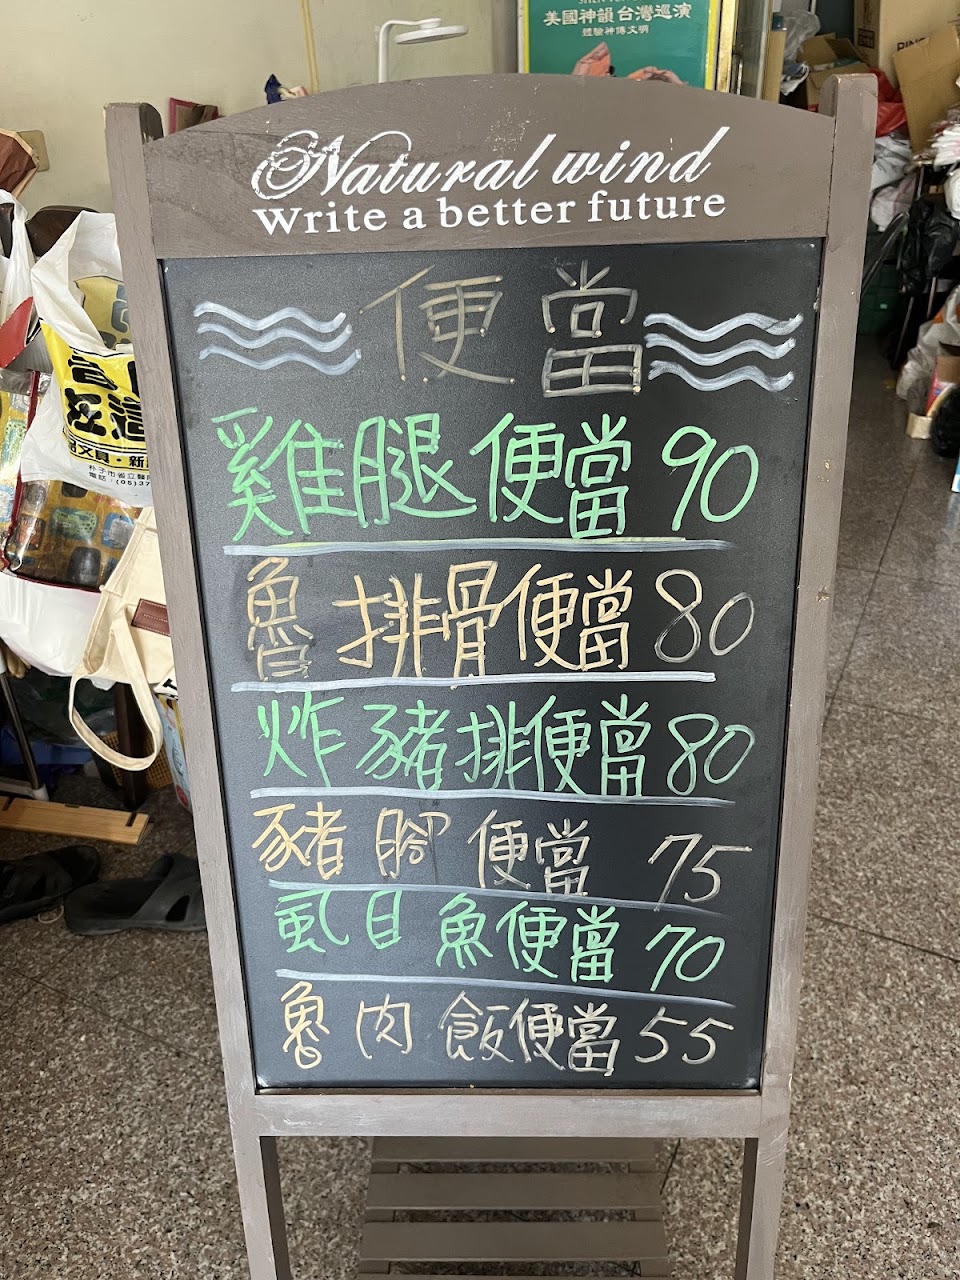 美國神韻 台灣巡演
體驗神傳文明
Natural wind
Write a better future
便當
雞腿便當 90
魯排骨便當 80
炸豬排便當 80
豬腳便當 75
虱目魚便當 70
魯肉飯便當 55
朴子市省立醫
電話：(05)37